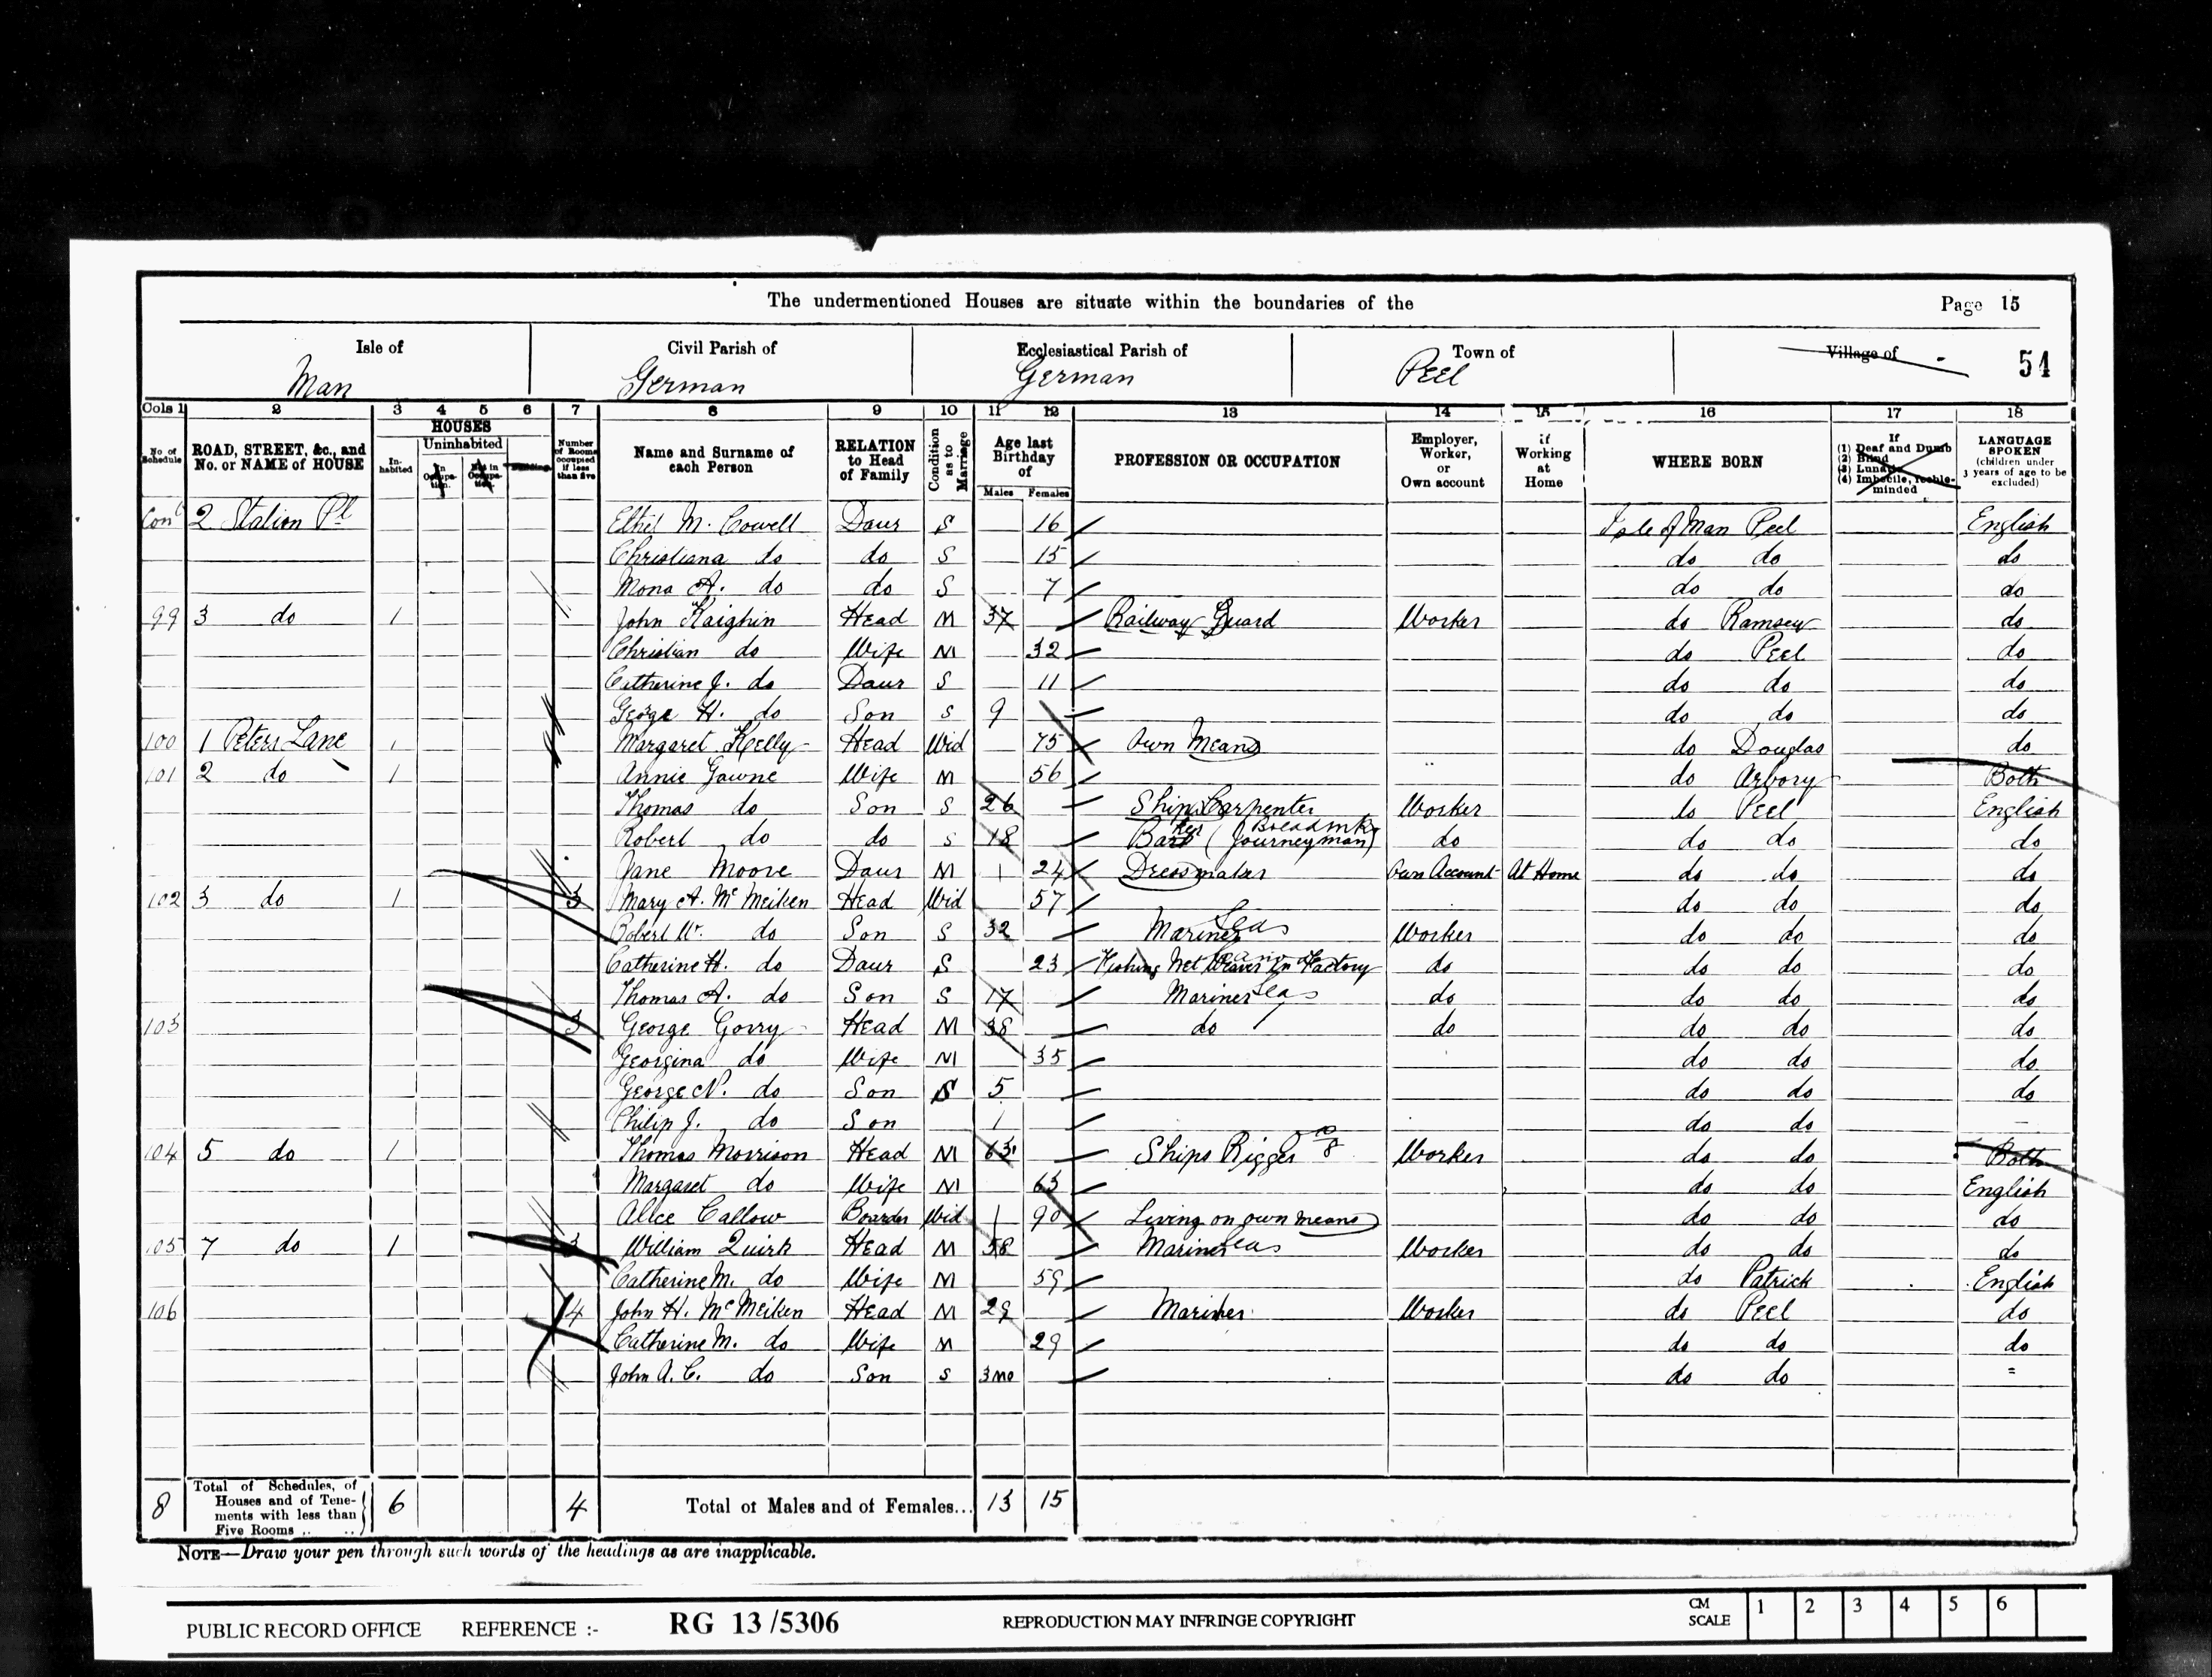 The undermentioned Houses are situate within the boundaries of the Page 15
Isle of Civil Parish of Ecclesiastical Parish of Town of Village of 54
Man German German Peel
Cols 1 2 3 4 5 6 7 8 9 10 11 12 13 14 15 16 17 18
No of Schedule ROAD, STREET, &c., and No. or NAME of HOUSE HOUSES Inhabited Uninhabited In Occupation. Not in Occupation. Building. Number of Rooms occupied if less than five Name and Surname of each Person RELATION to Head of Family Condition as to Marriage Age last Birthday of Males Females PROFESSION OR OCCUPATION Employer, Worker, or Own account if Working at Home WHERE BORN If (1) Deaf and Dumb (2) Blind (3) Lunatic (4) Imbecile, feeble-minded LANGUAGE SPOKEN (children under 3 years of age to be excluded)
Cont 2 Station Pl Ethel M. Cowell Daur S 16 Isle of Man Peel English
Christiana do do S 15 do do do
Mona A. do do S 7 do do do
99 3 do 1 John Kaighin Head M 37 Railway Guard Worker do Ramsey do
Christian do Wife M 32 do Peel do
Catherine J. do Daur S 11 do do do
George H. do Son S 9 do do do
100 1 Peters Lane 1 Margaret Kelly Head Wid 75 Own Means do Douglas do
101 2 do 1 Annie Gawne Wife M 56 do Arbory Both
Thomas do Son S 26 Ships Carpenter Worker do Peel English
Robert do do S 18 Baker (Breadmkr Journeyman) do do do do
Jane Moore Daur M 24 Dressmaker Own Account At Home do do do
102 3 do 1 3 Mary A. McMeiken Head Wid 57 do do do
Robert W. do Son S 32 Mariner Seas Worker do do do
Catherine H. do Daur S 23 Fishing Net Weaver in Factory do do do do
Thomas A. do Son S 17 Mariner Seas do do do do
103 3 George Gorry Head M 38 do do do do do
Georgina do Wife M 35 do do do
George N. do Son S 5 do do do
Philip J. do Son 1 do do
104 5 do 1 Thomas Morrison Head M 63 Ships Rigger Worker do do Both
Margaret do Wife M 63 do do English
Alice Callow Boarder Wid 90 Living on own means do do do
105 7 do 1 3 William Quirk Head M 58 Mariner Seas Worker do do do
Catherine M. do Wife M 59 do Patrick English
106 4 John H. McMeiken Head M 29 Mariner Worker do Peel do
Catherine M. do Wife M 29 do do do
John A. C. do Son S 3mo do do =
8 Total of Schedules, of Houses and of Tenements with less than Five Rooms .. .. 6 4 Total of Males and of Females... 13 15
NOTE—Draw your pen through such words of the headings as are inapplicable.
PUBLIC RECORD OFFICE REFERENCE :- RG 13/5306 REPRODUCTION MAY INFRINGE COPYRIGHT CM SCALE 1 2 3 4 5 6